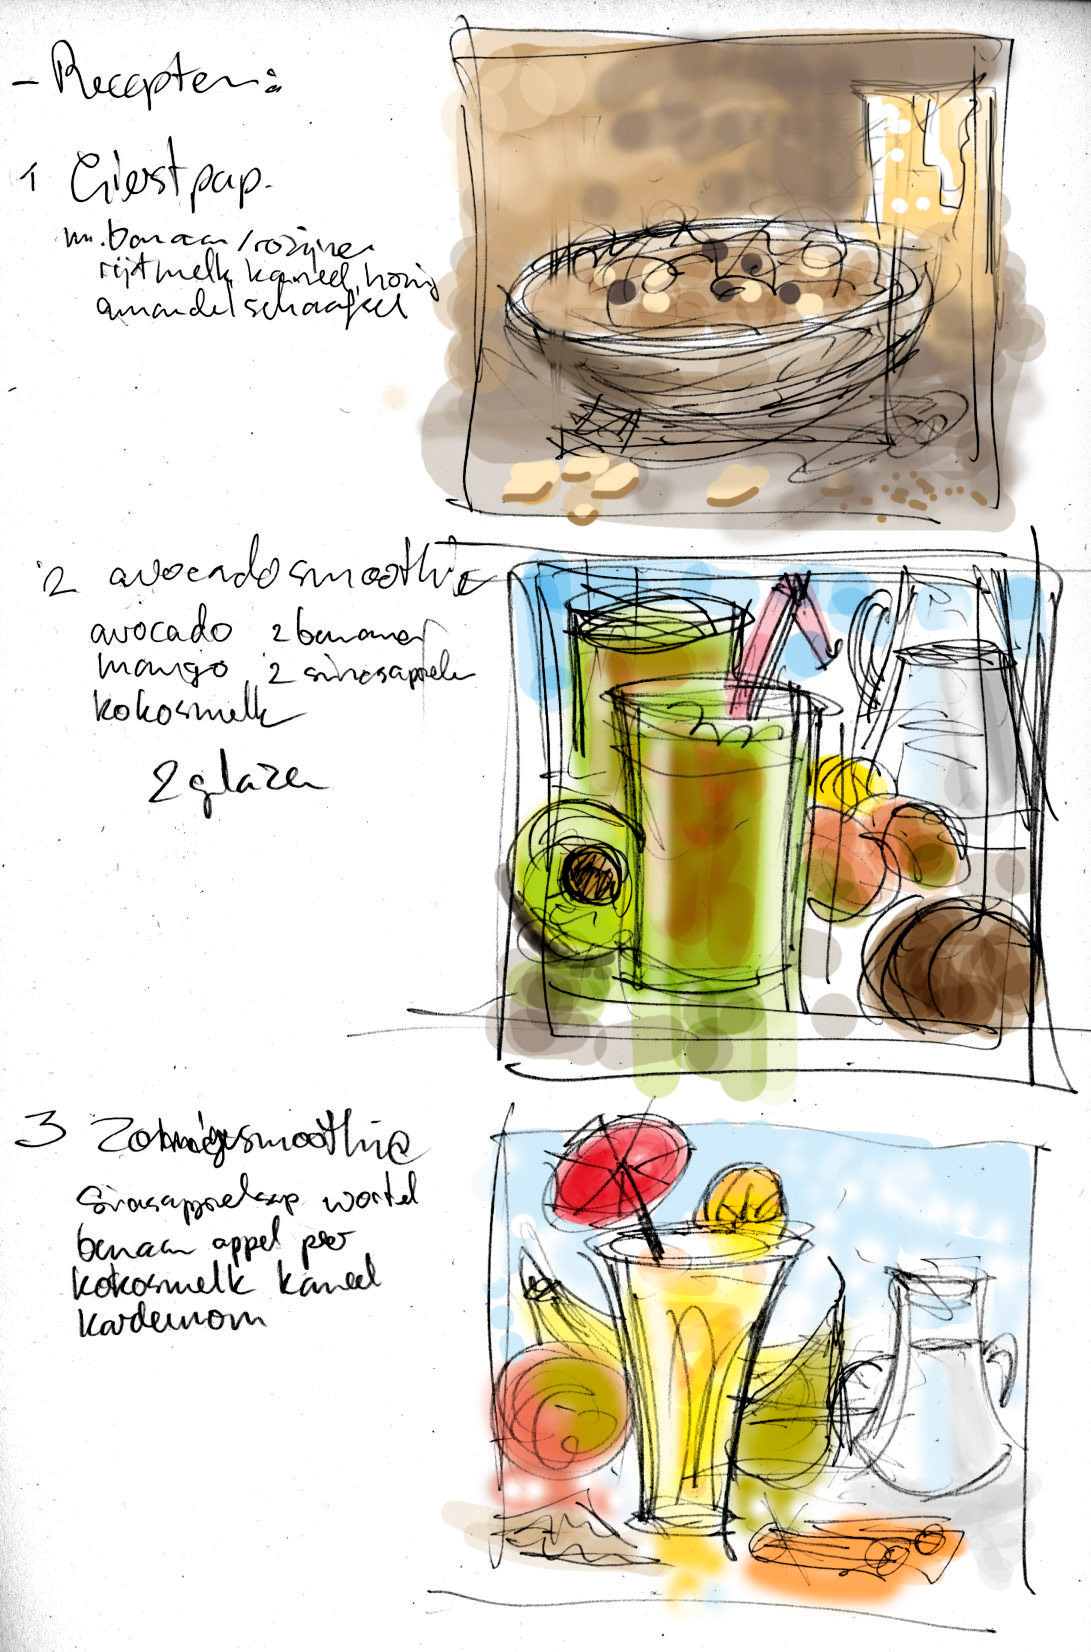 - Recepten:
1 Gierstpap.
m. banaan/rozijnen
rijstmelk kaneel, honig
amandelschaafsel
2 avocadosmoothie
avocado 2 bananen
mango 2 sinasappels
kokosmelk
2 glazen
3
sinasappelsap wortel
banaan appel peer
kokosmelk kaneel
kardemom